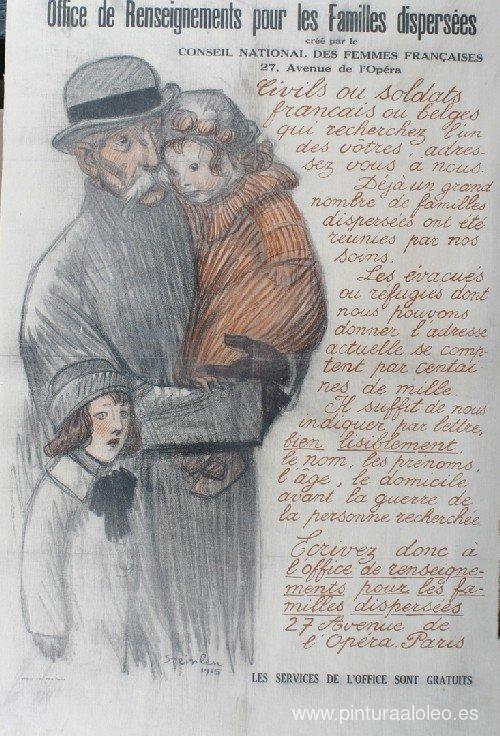 Office de Renseignements pour les Familles dispersées
créé par le
CONSEIL NATIONAL DES FEMMES FRANÇAISES
27, Avenue de l'Opéra
Civils ou soldats
français ou belges
qui recherchez l'un
des votres, adres-
sez vous a nous.
Déjà un grand
nombre de familles
dispersées ont été
réunies par nos
soins.
Les évacués
ou réfugiés dont
nous pouvons
donner l'adresse
actuelle se comp-
tent par centai
nes de mille.
Il suffit de nous
indiquer par lettre,
bien lisiblement,
le nom, les prénoms,
l'âge, le domicile
avant la guerre de
la personne recherchée.
Ecrivez donc à
l'office de renseigne-
ments pour les fa-
milles dispersées
27 Avenue de
l'Opéra. Paris
Steinlen
1915
LES SERVICES DE L'OFFICE SONT GRATUITS
www.pinturaaloleo.es